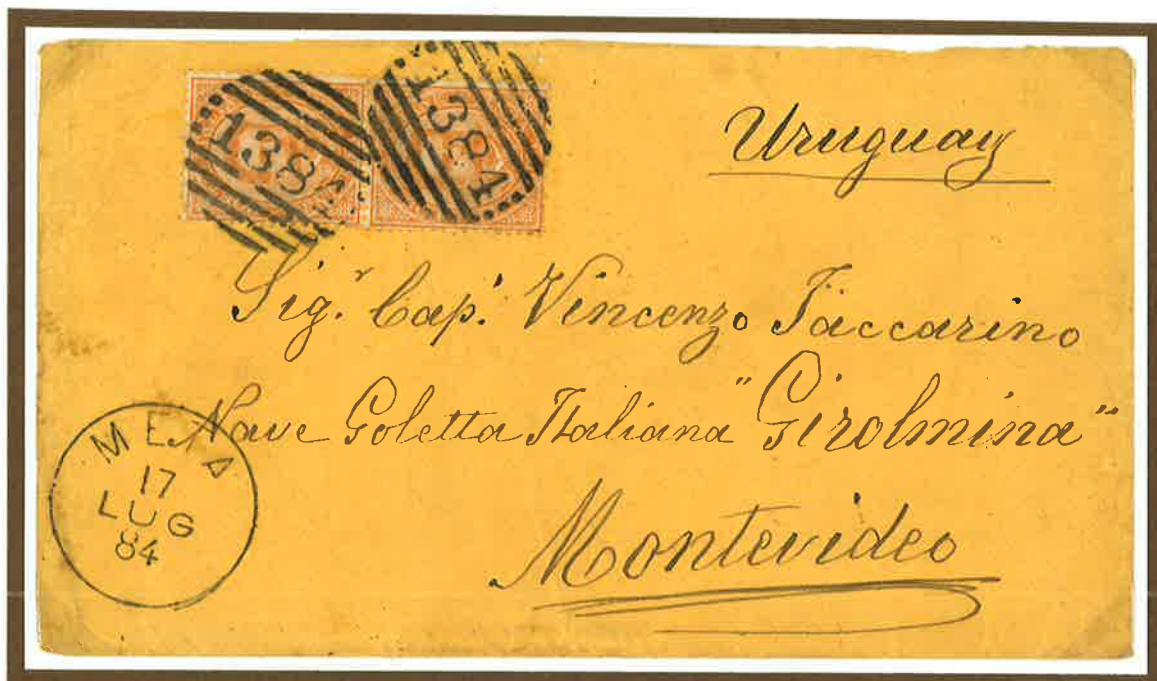 1384
1384
Uruguay
Sig.r Cap: Vincenzo Jaccarino
Nave Goletta Italiana "Girolmina"
Montevideo
META
17
LUG
84